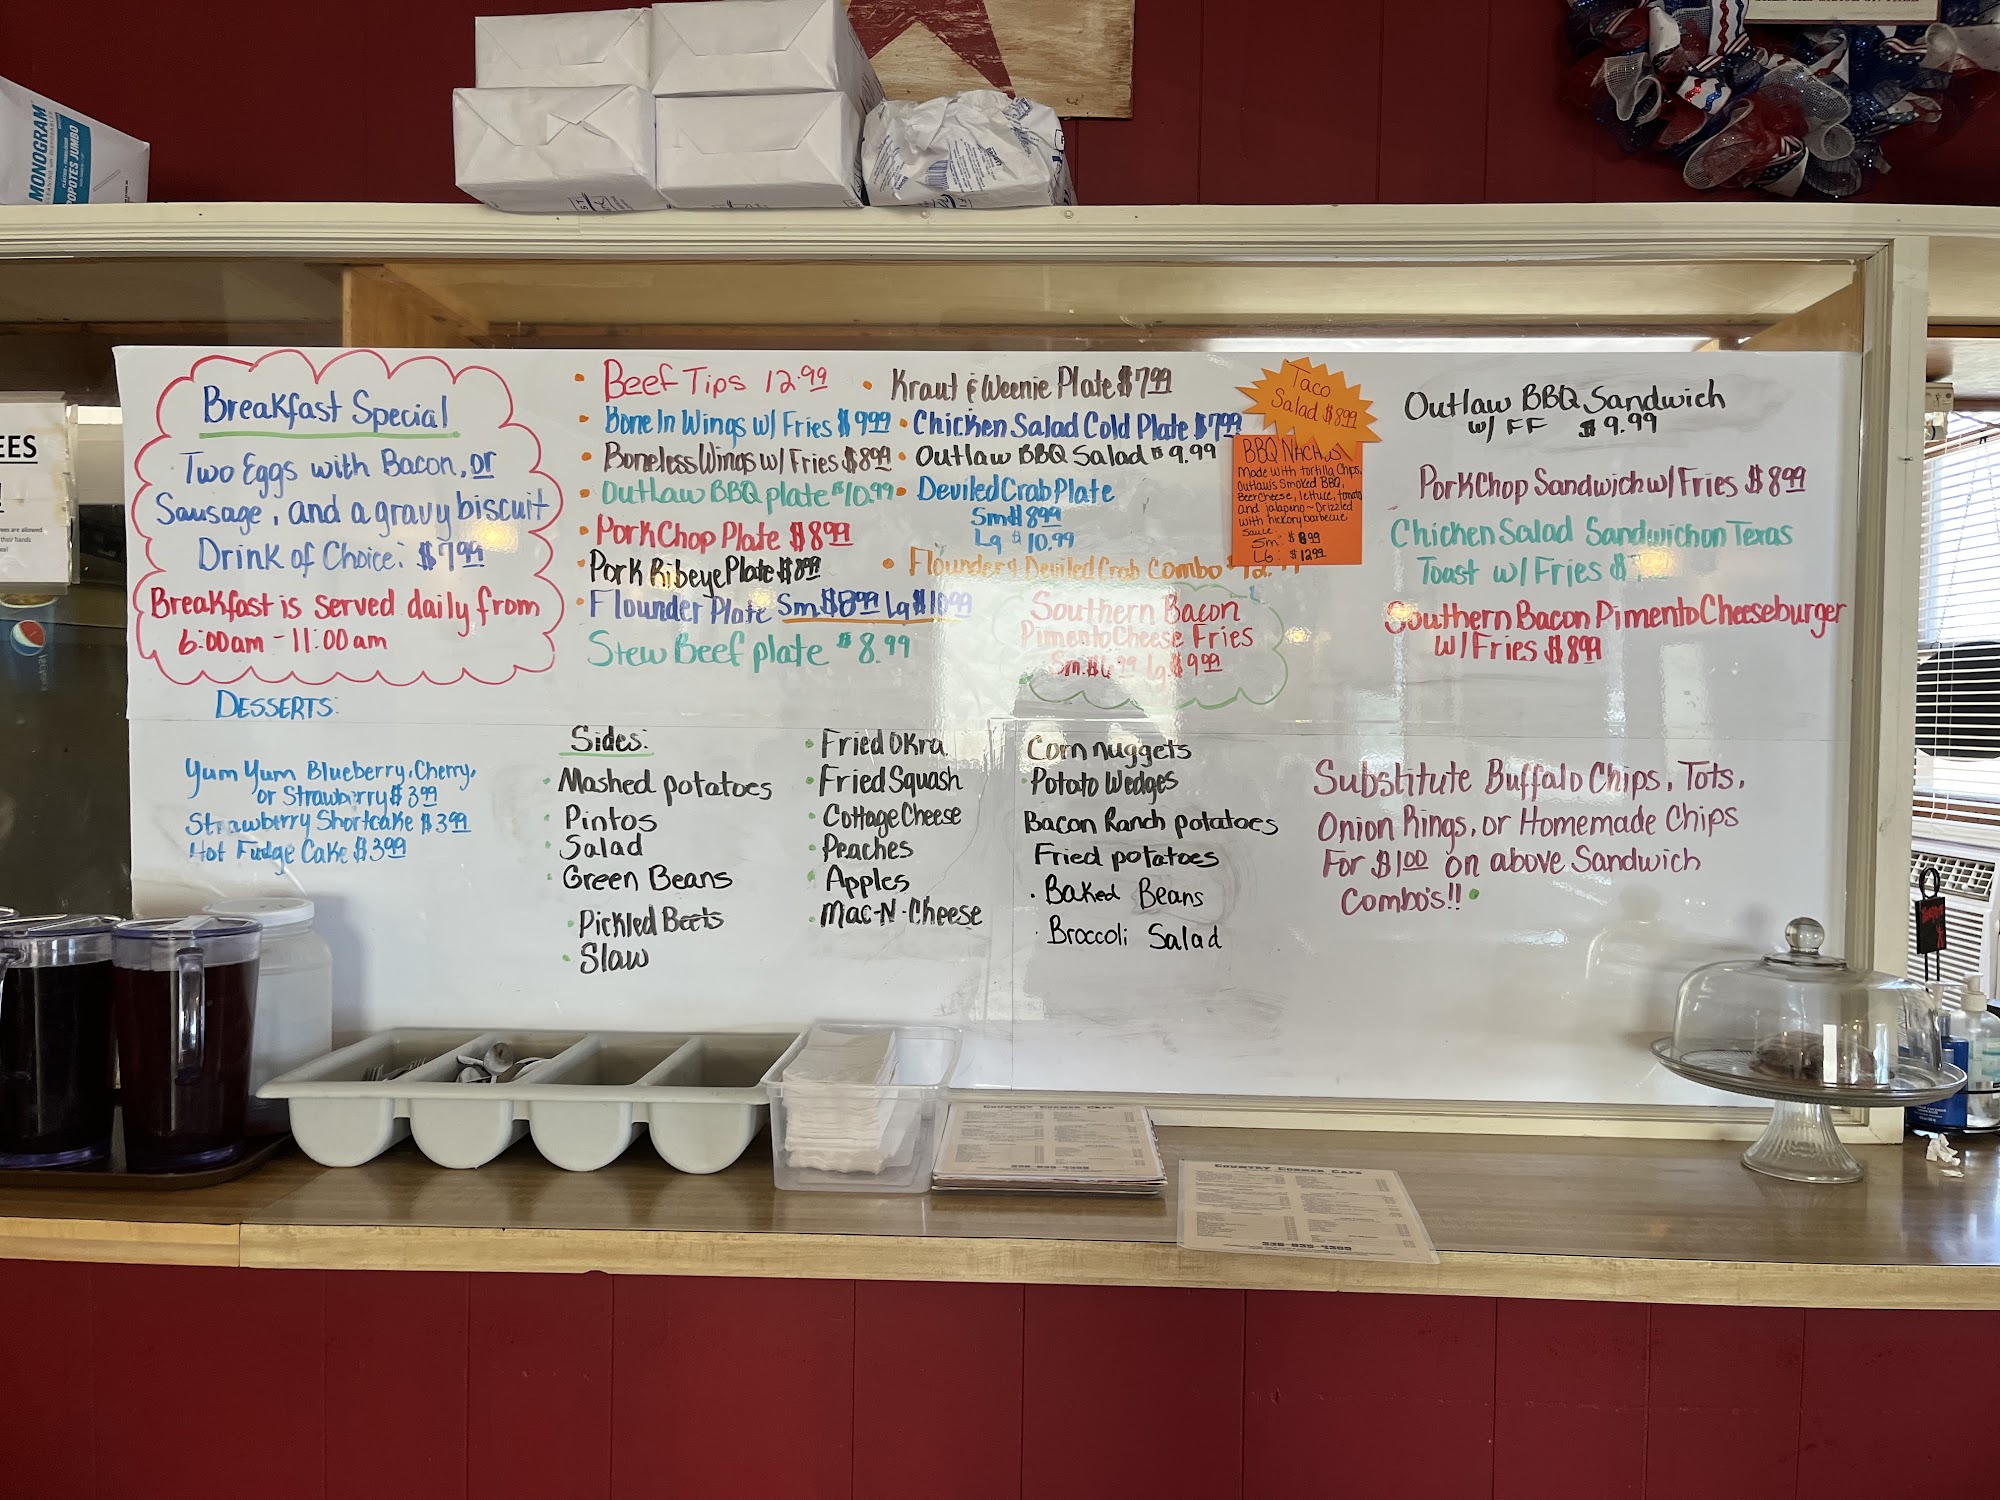 MONOGRAM
POPOTES JUMBO
EES
Breakfast Special
Two Eggs with Bacon, or
Sausage, and a gravy biscuit
Drink of Choice: $7.99
Breakfast is served daily from
6:00am - 11:00am
DESSERTS:
Yum Yum Blueberry, Cherry,
or Strawbirry $3.99
Strawberry Shortcake $3.99
Hot Fudge Cake $3.99
Beef Tips 12.99
Bone In Wings w/ Fries $9.99
Boneless Wings w/ Fries $8.99
Outlaw BBQ plate $10.99
Pork Chop Plate $8.99
Pork Ribeye Plate $8.99
Flounder Plate Sm. $8.99 Lg $10.99
Stew Beef plate $8.99
Kraut & Weenie Plate $7.99
Chicken Salad Cold Plate $7.99
Outlaw BBQ Salad $9.99
Deviled Crab Plate
Sm $8.99
Lg $10.99
Flounder & Deviled Crab Combo
Southern Bacon
Pimento Cheese Fries
Sm. $6.99 Lg. $9.99
Taco
Salad $8.99
BBQ NACHOS
Made with tortilla chips,
Outlaw's Smoked BBQ,
Beer Cheese, lettuce, tomato
and jalapeno ~ Drizzled
with hickory barbecue
sauce
Sm: $8.99
LG: $12.99
Outlaw BBQ Sandwich
w/ FF $9.99
Pork Chop Sandwich w/ Fries $8.99
Chicken Salad Sandwich on Texas
Toast w/ Fries
Southern Bacon Pimento Cheeseburger
w/ Fries $8.99
Sides:
Mashed potatoes
Pintos
Salad
Green Beans
Pickled Beets
Slaw
Fried Okra
Fried Squash
Cottage Cheese
Peaches
Apples
Mac-N-Cheese
Corn nuggets
Potato Wedges
Bacon Ranch potatoes
Fried potatoes
Baked Beans
Broccoli Salad
Substitute Buffalo Chips, Tots,
Onion Rings, or Homemade Chips
For $1.00 on above Sandwich
Combo's!!
COUNTRY CORNER CAFE
336-835-4389
COUNTRY CORNER CAFE
336-835-4389